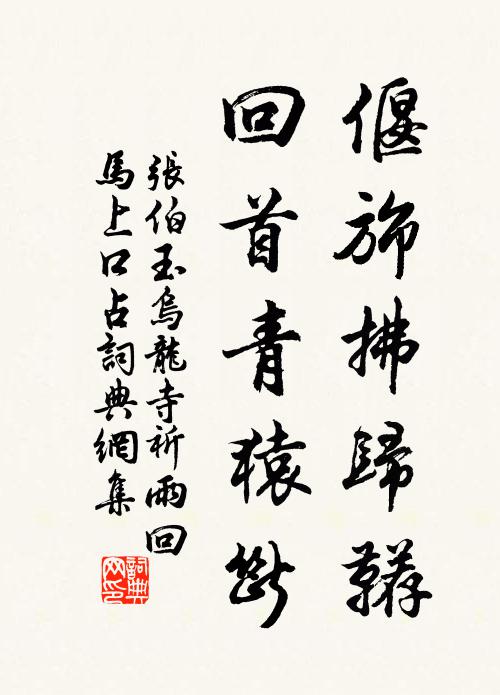 偃旆拂歸鞯
回首青猿斷
張伯玉烏龍寺祈雨回
馬上口占詞典網集
詞典
网印